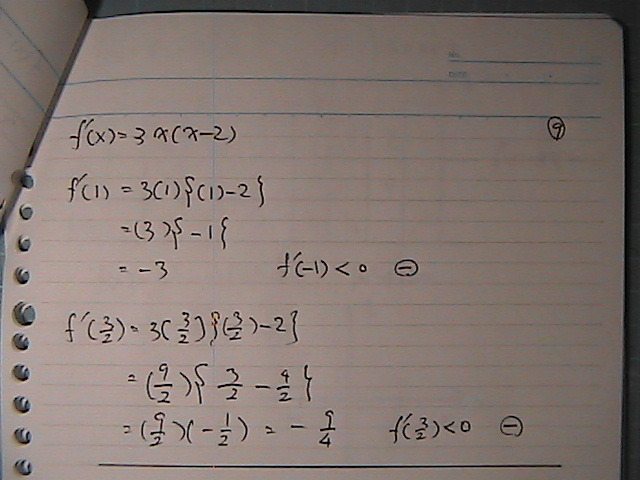 NO.
DATE
f'(x) = 3x(x-2) ⑨
f'(1) = 3(1){(1)-2}
= (3){-1{
= -3 f'(-1) < 0 ⊖
f'(3/2) = 3(3/2){(3/2)-2}
= (9/2){3/2 - 4/2}
= (9/2)(-1/2) = -9/4 f'(3/2) < 0 ⊖